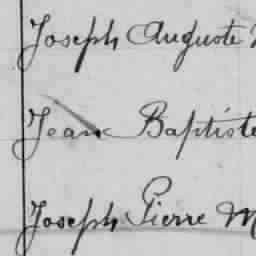 Joseph Auguste
Jean Baptiste
Joseph Pierre M